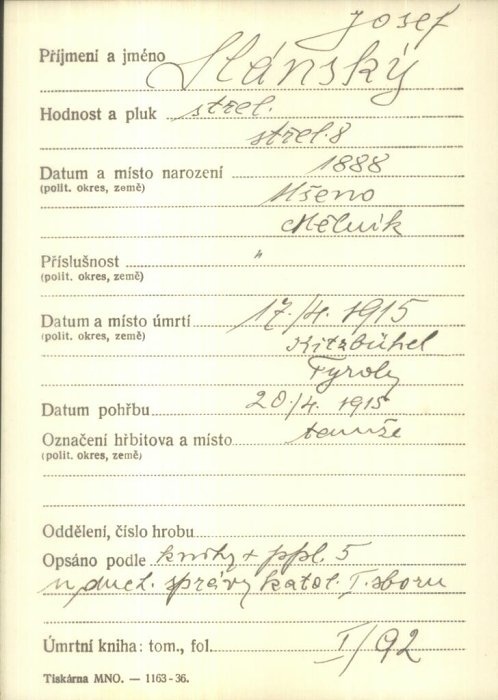 Josef
Příjmení a jméno Slánský
Hodnost a pluk střel.
střel. 8
Datum a místo narození 1888
(polit. okres, země) Mšeno
Mělník
Příslušnost "
(polit. okres, země)
Datum a místo úmrtí 17./4. 1915
(polit. okres, země) Kitzbühel
Tyroly
Datum pohřbu 20./4. 1915
Označení hřbitova a místo tamže
(polit. okres, země)
Oddělení, číslo hrobu
Opsáno podle knihy + ppl. 5
u duch. správy katol. I. sboru
Úmrtní kniha: tom., fol. I/92
Tiskárna MNO. — 1163-36.